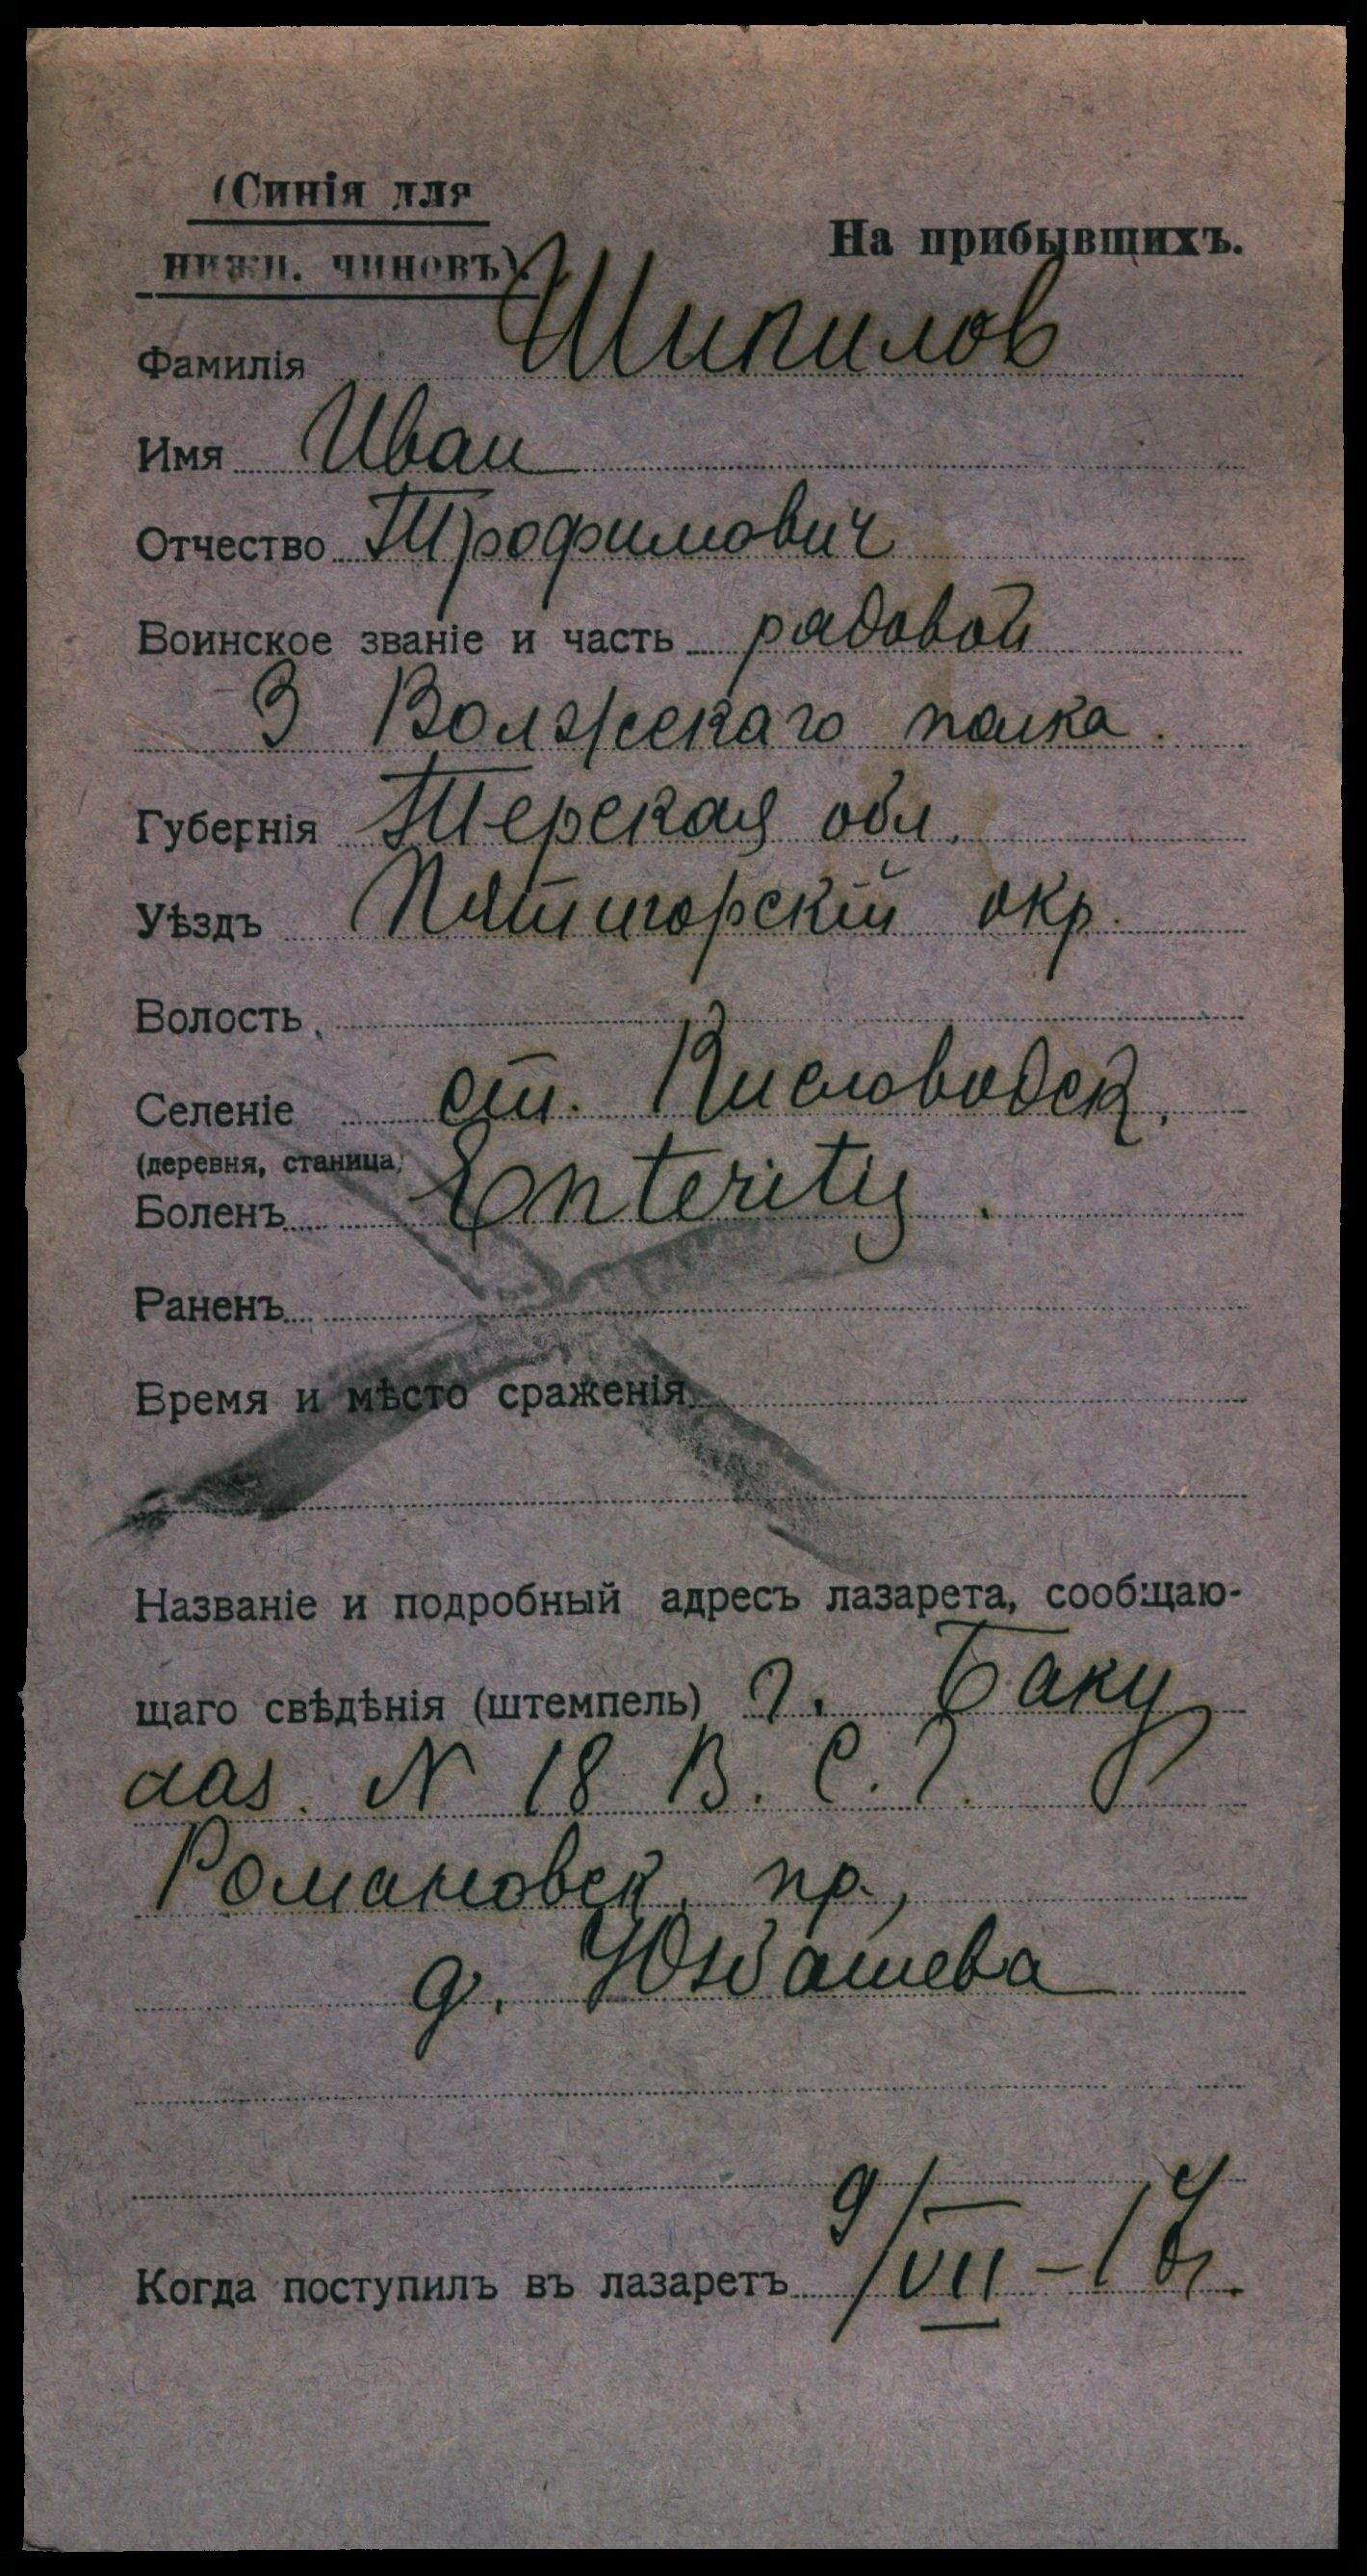 (Синія для
нижн. чиновъ).
На прибывшихъ.
Фамилія Шипилов
Имя Иван
Отчество Трофимович
Воинское званіе и часть рядовой
3 Волжскаго полка.
Губернія Терская обл.
Уѣздъ Пятигорскій окр.
Волость
Селеніе ст. Кисловодск.
(деревня, станица)
Боленъ Enteritis.
Раненъ
Время и мѣсто сраженія
Названіе и подробный адресъ лазарета, сообщаю-
щаго свѣдѣнія (штемпель) г. Баку
лаз. N 18 В. С. Г.
Романовск. пр.,
д. Юзбашева
Когда поступилъ въ лазаретъ 9/VII-